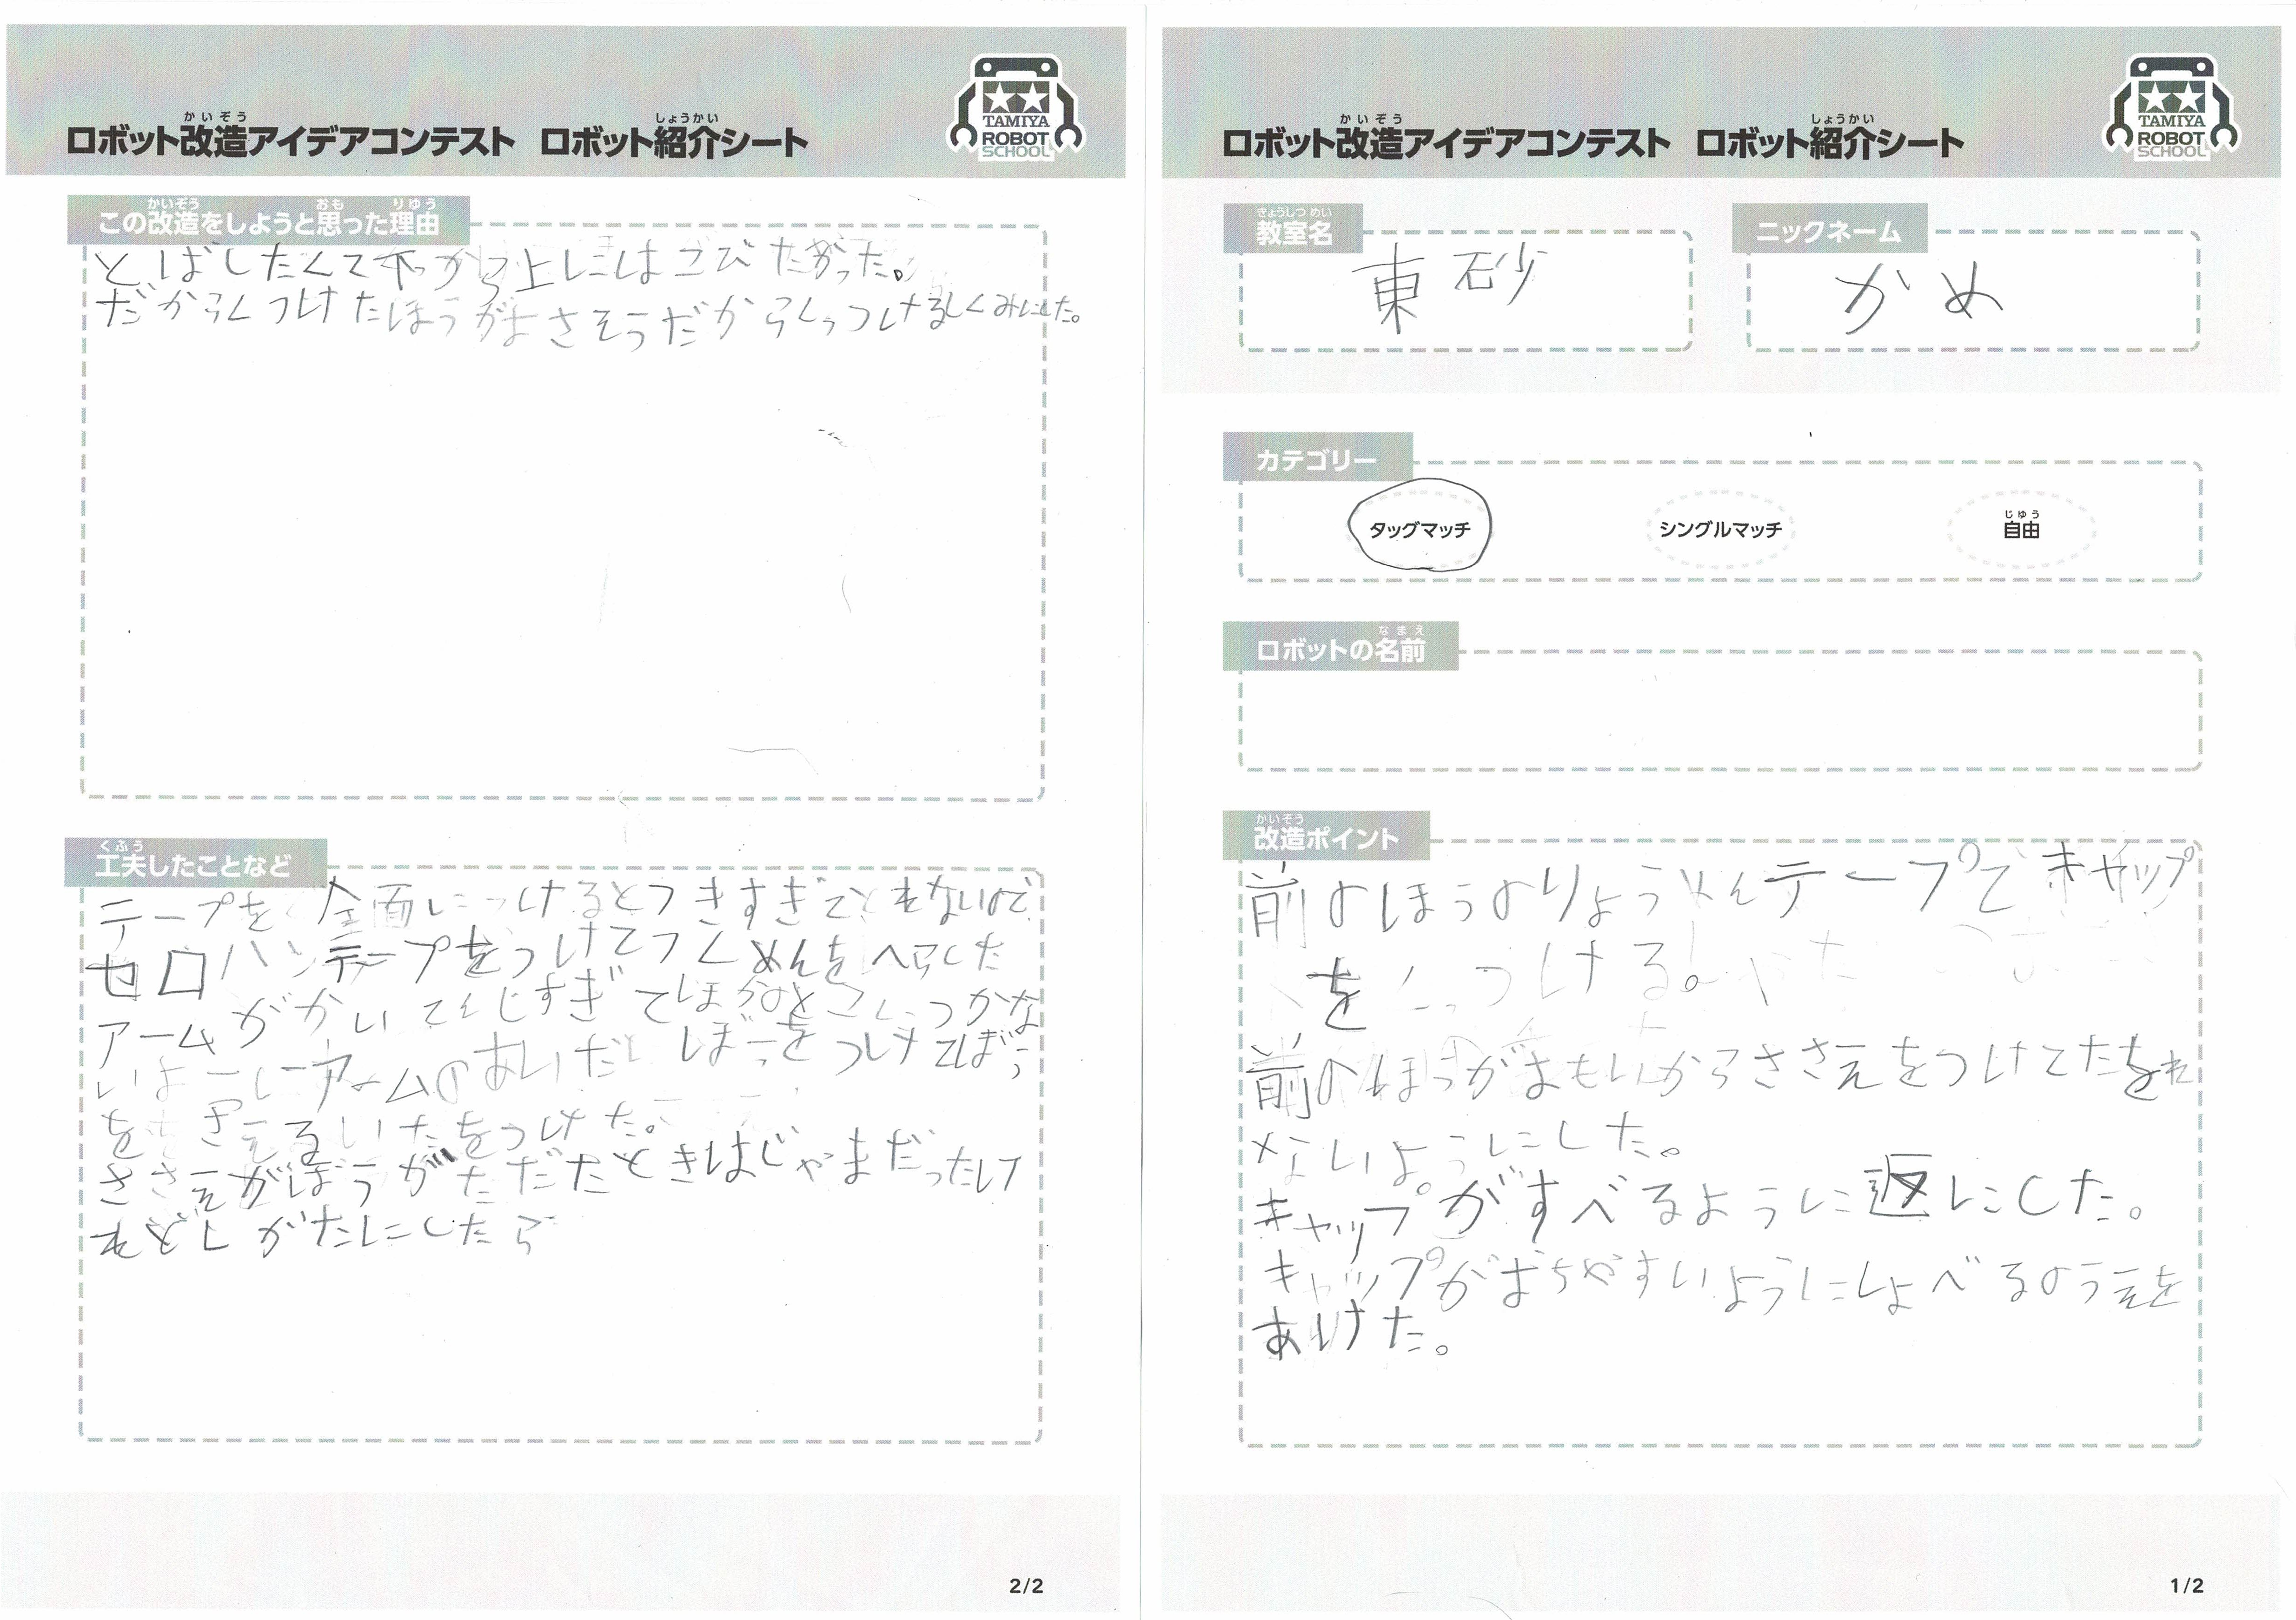 かいぞう しょうかい
ロボット改造アイデアコンテスト ロボット紹介シート
TAMIYA
ROBOT
SCHOOL
かいぞう おも りゆう
この改造をしようと思った理由
とばしたくて下から上にはこびたかった。
だからくつけたほうがよさそうだからくっつけるしくみにした。
くふう
工夫したことなど
テープを全面につけるとつきすぎてとれないので
セロハンテープをつけてつくめんをへらした
アームがかいてんしすぎてほかのとこにつかな
いよーにアームのあいだにぼーをつけてぼう
をささえるいたをつけた。
ささえがぼうがただたときはじゃまだったけ
れどしがたにしたら
2/2
かいぞう しょうかい
ロボット改造アイデアコンテスト ロボット紹介シート
TAMIYA
ROBOT
SCHOOL
きょうしつ めい
教室名
東砂
ニックネーム
かめ
カテゴリー
タッグマッチ シングルマッチ じゆう 自由
なまえ
ロボットの名前
かいぞう
改造ポイント
前のほうのりょうめんテープでキャップ
をくっつける。
前のほうがおもいからささえをつけてたをれ
ないようにした。
キャップがすべるように返にした。
キャップがおちやすいようにしょべるのうえを
あけた。
1/2